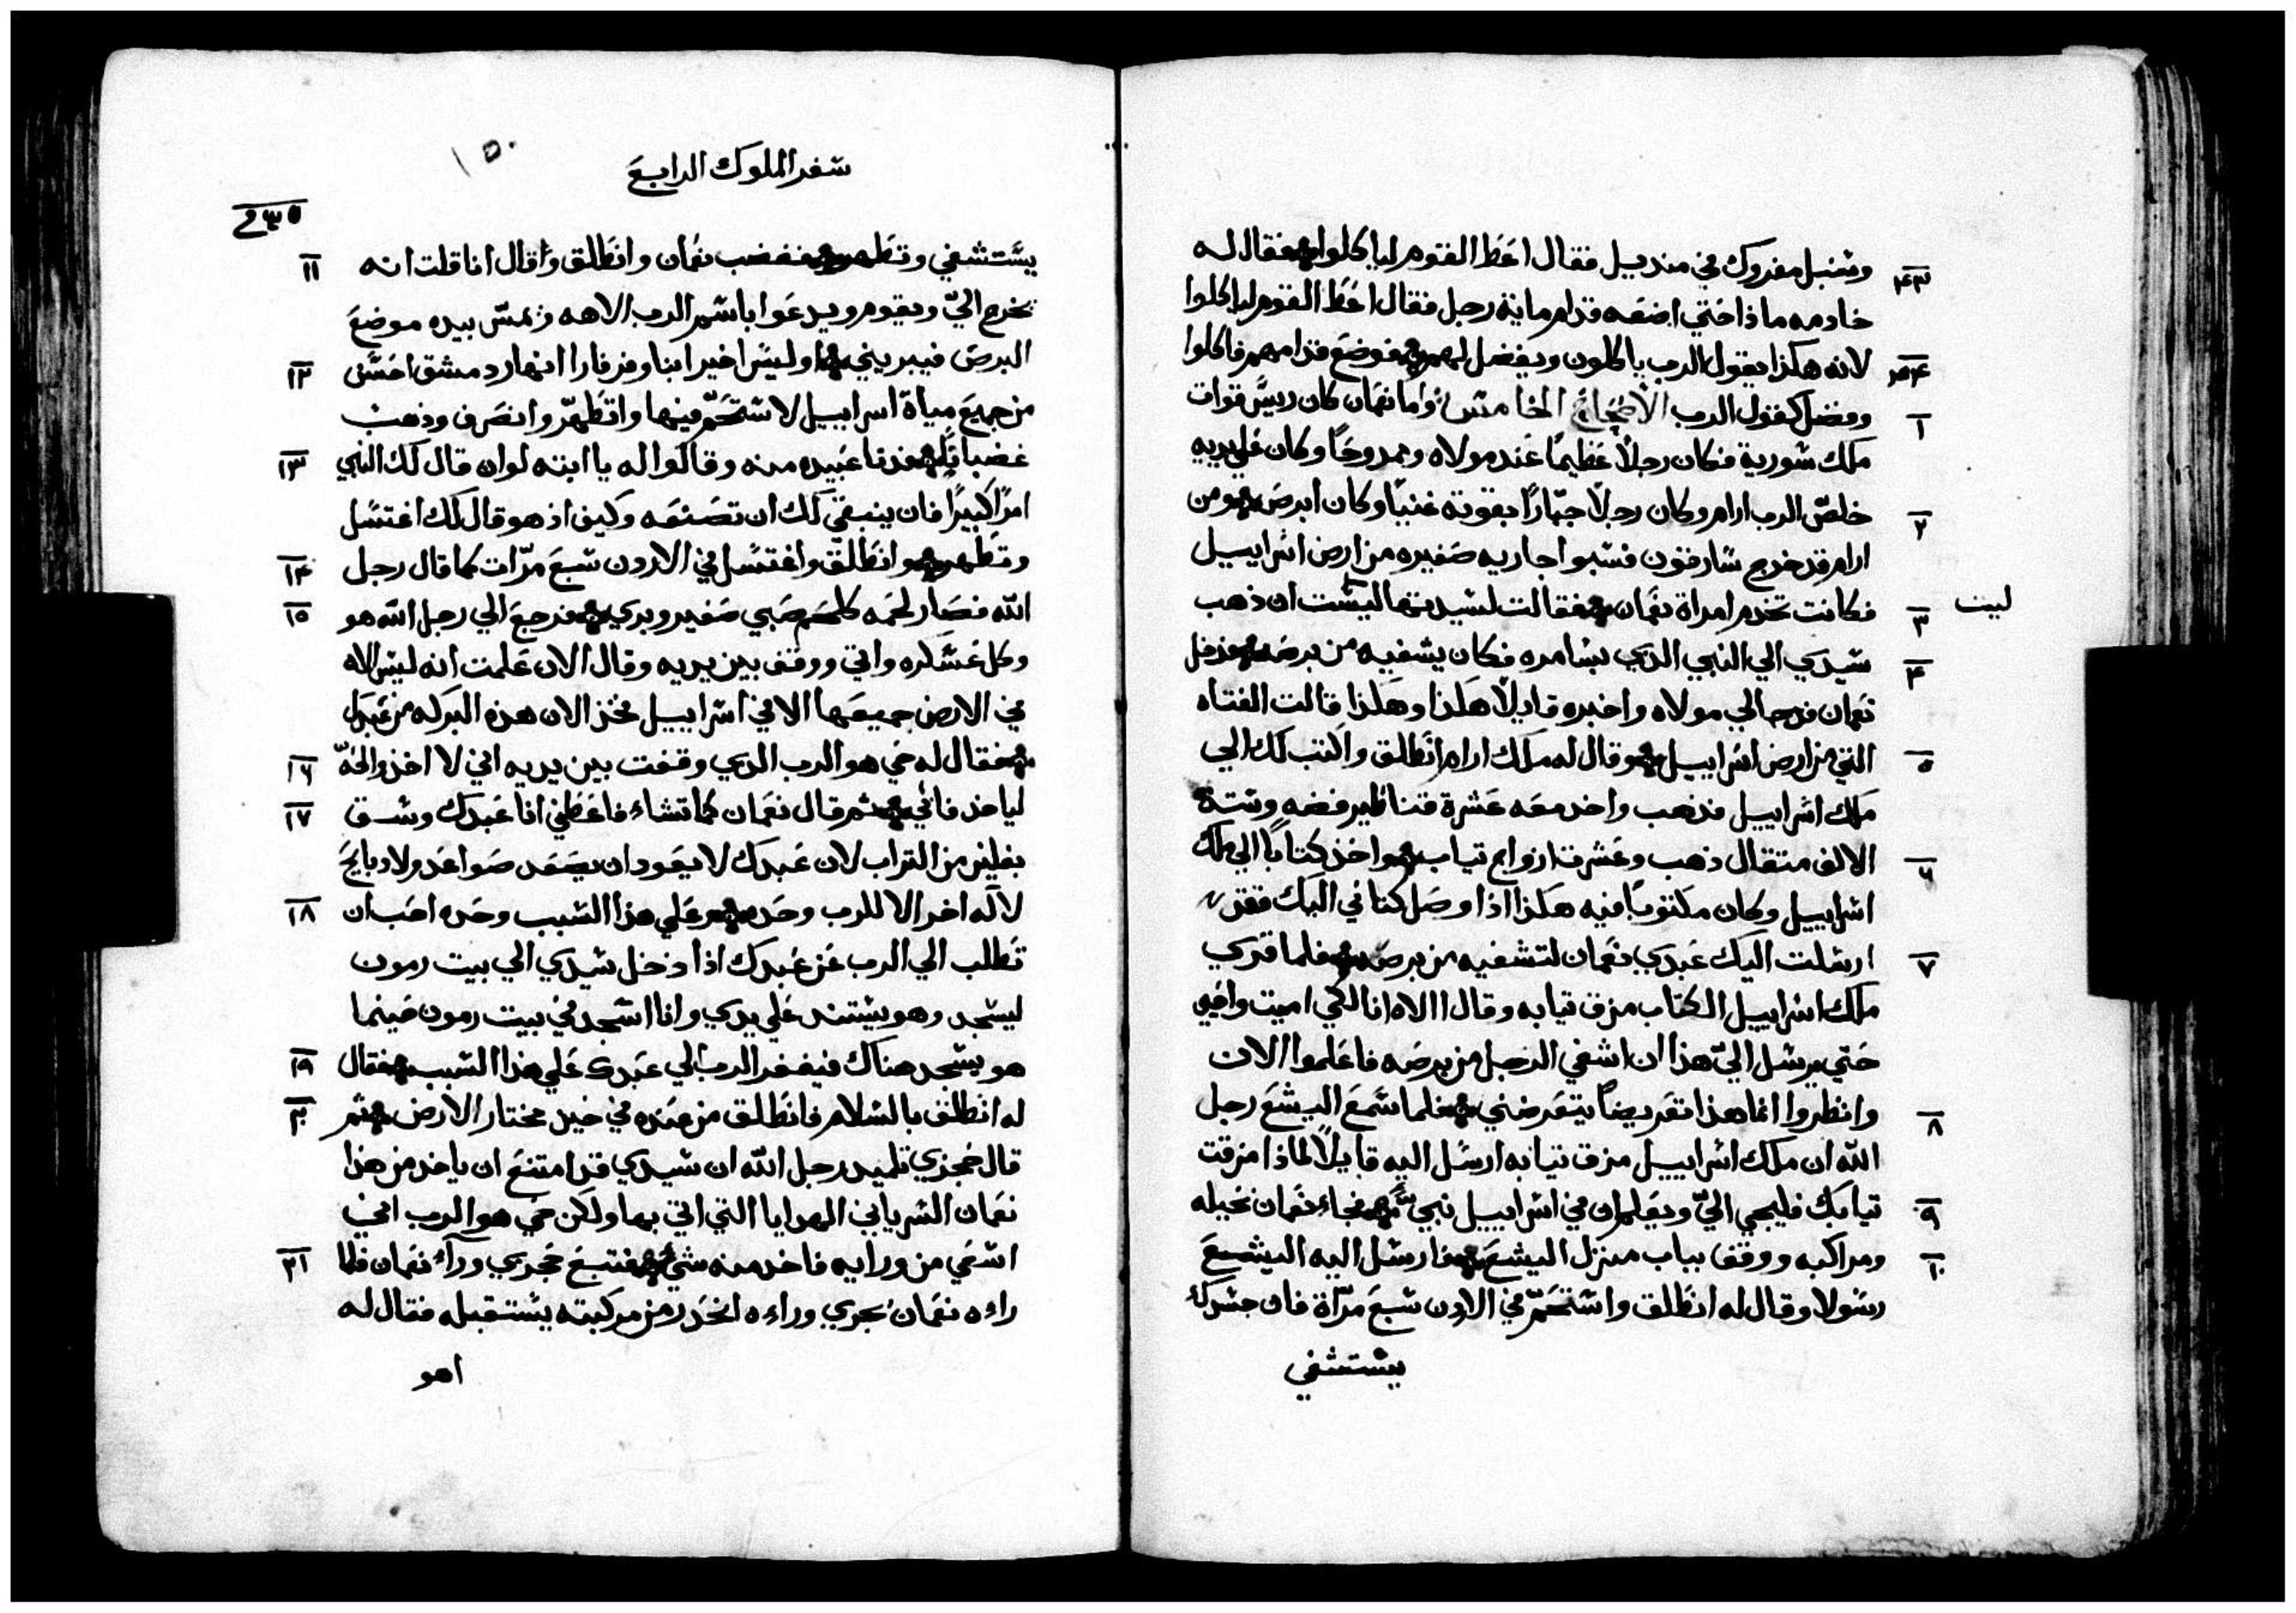 وسنبل مفروك في منديل فقال اعط القوم لياكلوا فقال له
٤٣
خادمه ماذا حتي اضعه قدام ماية رجل فقال اعط القوم لياكلوا
لانه هكذا يقول الرب ياكلون ويفضل لهم فوضع قدامهم فاكلوا
٤٤
وفضل كقول الرب الاصحاح الخامس واما نعمان كان رييس قوات
١
ملك سورية فكان رجلاً عظيماً عند مولاه وممدوحاً وكان علي يديه
خلص الرب ارام وكان رجلاً جبّاراً بقوته غنياً وكان ابرص ومن
٢
ارام قد خرج سارقون فسبوا جاريه صغيره من ارض اسراييل
فكانت تخدم امراة نعمان فقالت لسيدتها اليست ان ذهب
٣
ليت
سيدي الي النبي الذي بسامره فكان يشفيه من برصه فدخل
٤
نعمان فرحا الي مولاه واخبره قايلاً هكذا وهكذا قالت الفتاه
التي من ارض اسراييل وقال له ملك ارام انطلق واكتب لك الي
٥
ملك اسراييل فذهب واخد معه عشرة قناطير فضه وستة
الالف متقال ذهب وعشرت ازواج تياب واخذ كتاباً الي ملك
٦
اسراييل وكان مكتوباً فيه هكذا اذا وصل كتابي اليك فقد
ارسلت اليك عبدي نعمان لتشفيه من برصه فلما قري
٧
ملك اسراييل الكتاب مزق تيابه وقال االاه انا لكي اميت واحيي
حتي يرسل اليّ هذا ان اشفي الرجل من برصه فاعلموا الان
وانظروا انما هذا تعريضاً يتعرضني فلما سمع اليشع رجل
٨
الله ان ملك اسراييل مزق تيابه ارسل اليه قايلاً لماذا مزقت
تيابك فليجي اليّ ويعلم ان في اسراييل نبي فجاء نعمان بخيله
٩
ومراكبه ووقف بباب منزل اليشع فارسل اليه اليشع
١٠
رسولا وقال له انطلق واستحمّ في الاردن سبع مرّاة فان جسدك
يستشفي
سفر الملوك الرابع
١٥٠
٢٣٥
يستشفي وتطهر فغضب نعمان وانطلق وقال انا قلت انه
١١
يخرج اليّ ويقوم ويدعوا باسم الرب الاهه ويمسّ بيده موضع
البرص فيبريني اوليس اخير ابنا وفرفارا انهار دمشق احسن
١٢
من جميع مياة اسراييل لاستحمّ فيها واتطهّر وانصرف وذهب
غضباناً فدنا عبيده منه وقالوا له يا ابته لوان قال لك النبي
١٣
امراً كبيراً فان ينبغي لك ان تصنعه وكيف اذ هو قال لك اغتسل
وتطهر وانطلق واغتسل في الاردن سبع مرّات كما قال رجل
١٤
الله فصار لحمه كلحم صبي صغير وبري فرجع الي رجل الله هو
١٥
وكل عسكره واتي ووقف بين يديه وقال الان علمت انه ليس الاه
في الارض جميعها الا في اسراييل فخذ الان هذه البركه من عبدك
فقال له حي هو الرب الدي وقفت بين يديه اني لا اخذ والحّ
١٦
لياخد فابي ثم قال نعمان كما تشاء فاعطني انا عبدك وسق
١٧
بغلين من التراب لان عبدك لا يعود ان يصعد صواعد ولا دبايح
لاله اخر الا للرب وحده وعلي هذا السبب وحده احب ان
١٨
تطلب الي الرب عن عبدك اذا دخل سيدي الي بيت رمون
ليسجد وهو يستند علي يدي وانا اسجد في بيت رمون حينما
هو يسجد هناك فيغفر الرب لي عبدك علي هذا السبب فقال
١٩
له انطلق بالسلام فانطلق من عنده في حين مختار الارض ثم
٢٠
قال حجزي تلميد رجل الله ان سيدي قد امتنع ان ياخد من هذا
نعمان السرياني الهدايا التي اتي بها ولكن حي هو الرب اني
اسعي من ورايه فاخد منه شيء فتبع حجزي ورآء نعمان فلما
٢١
راءه نعمان يجري وراءه انحدر من مركبته يستقبله فقال له
اهو